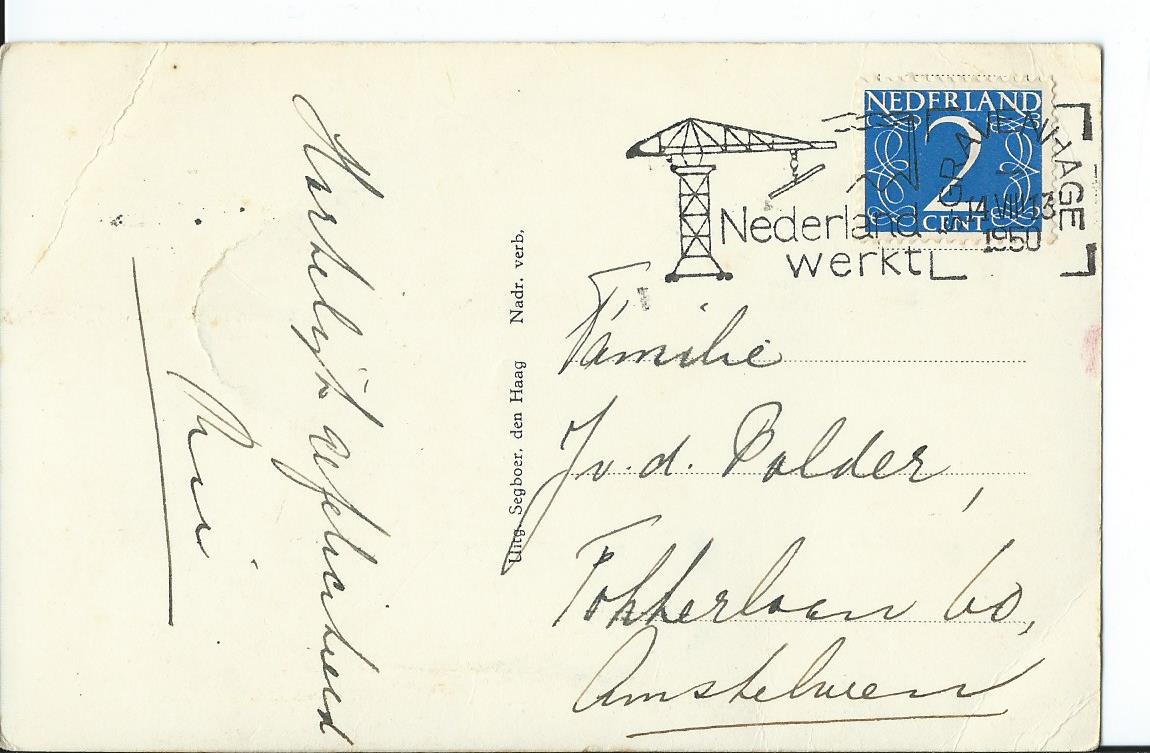 Hartelijk gefeliciteerd
Rini
Uitg. Segboer, den Haag Nadr. verb.
NEDERLAND
2
CENT
'S GRAVENHAGE
14 VIII 13
1950
Nederland
werkt
Familie
J v. d. Polder,
Fokkerlaan 60,
Amstelveen